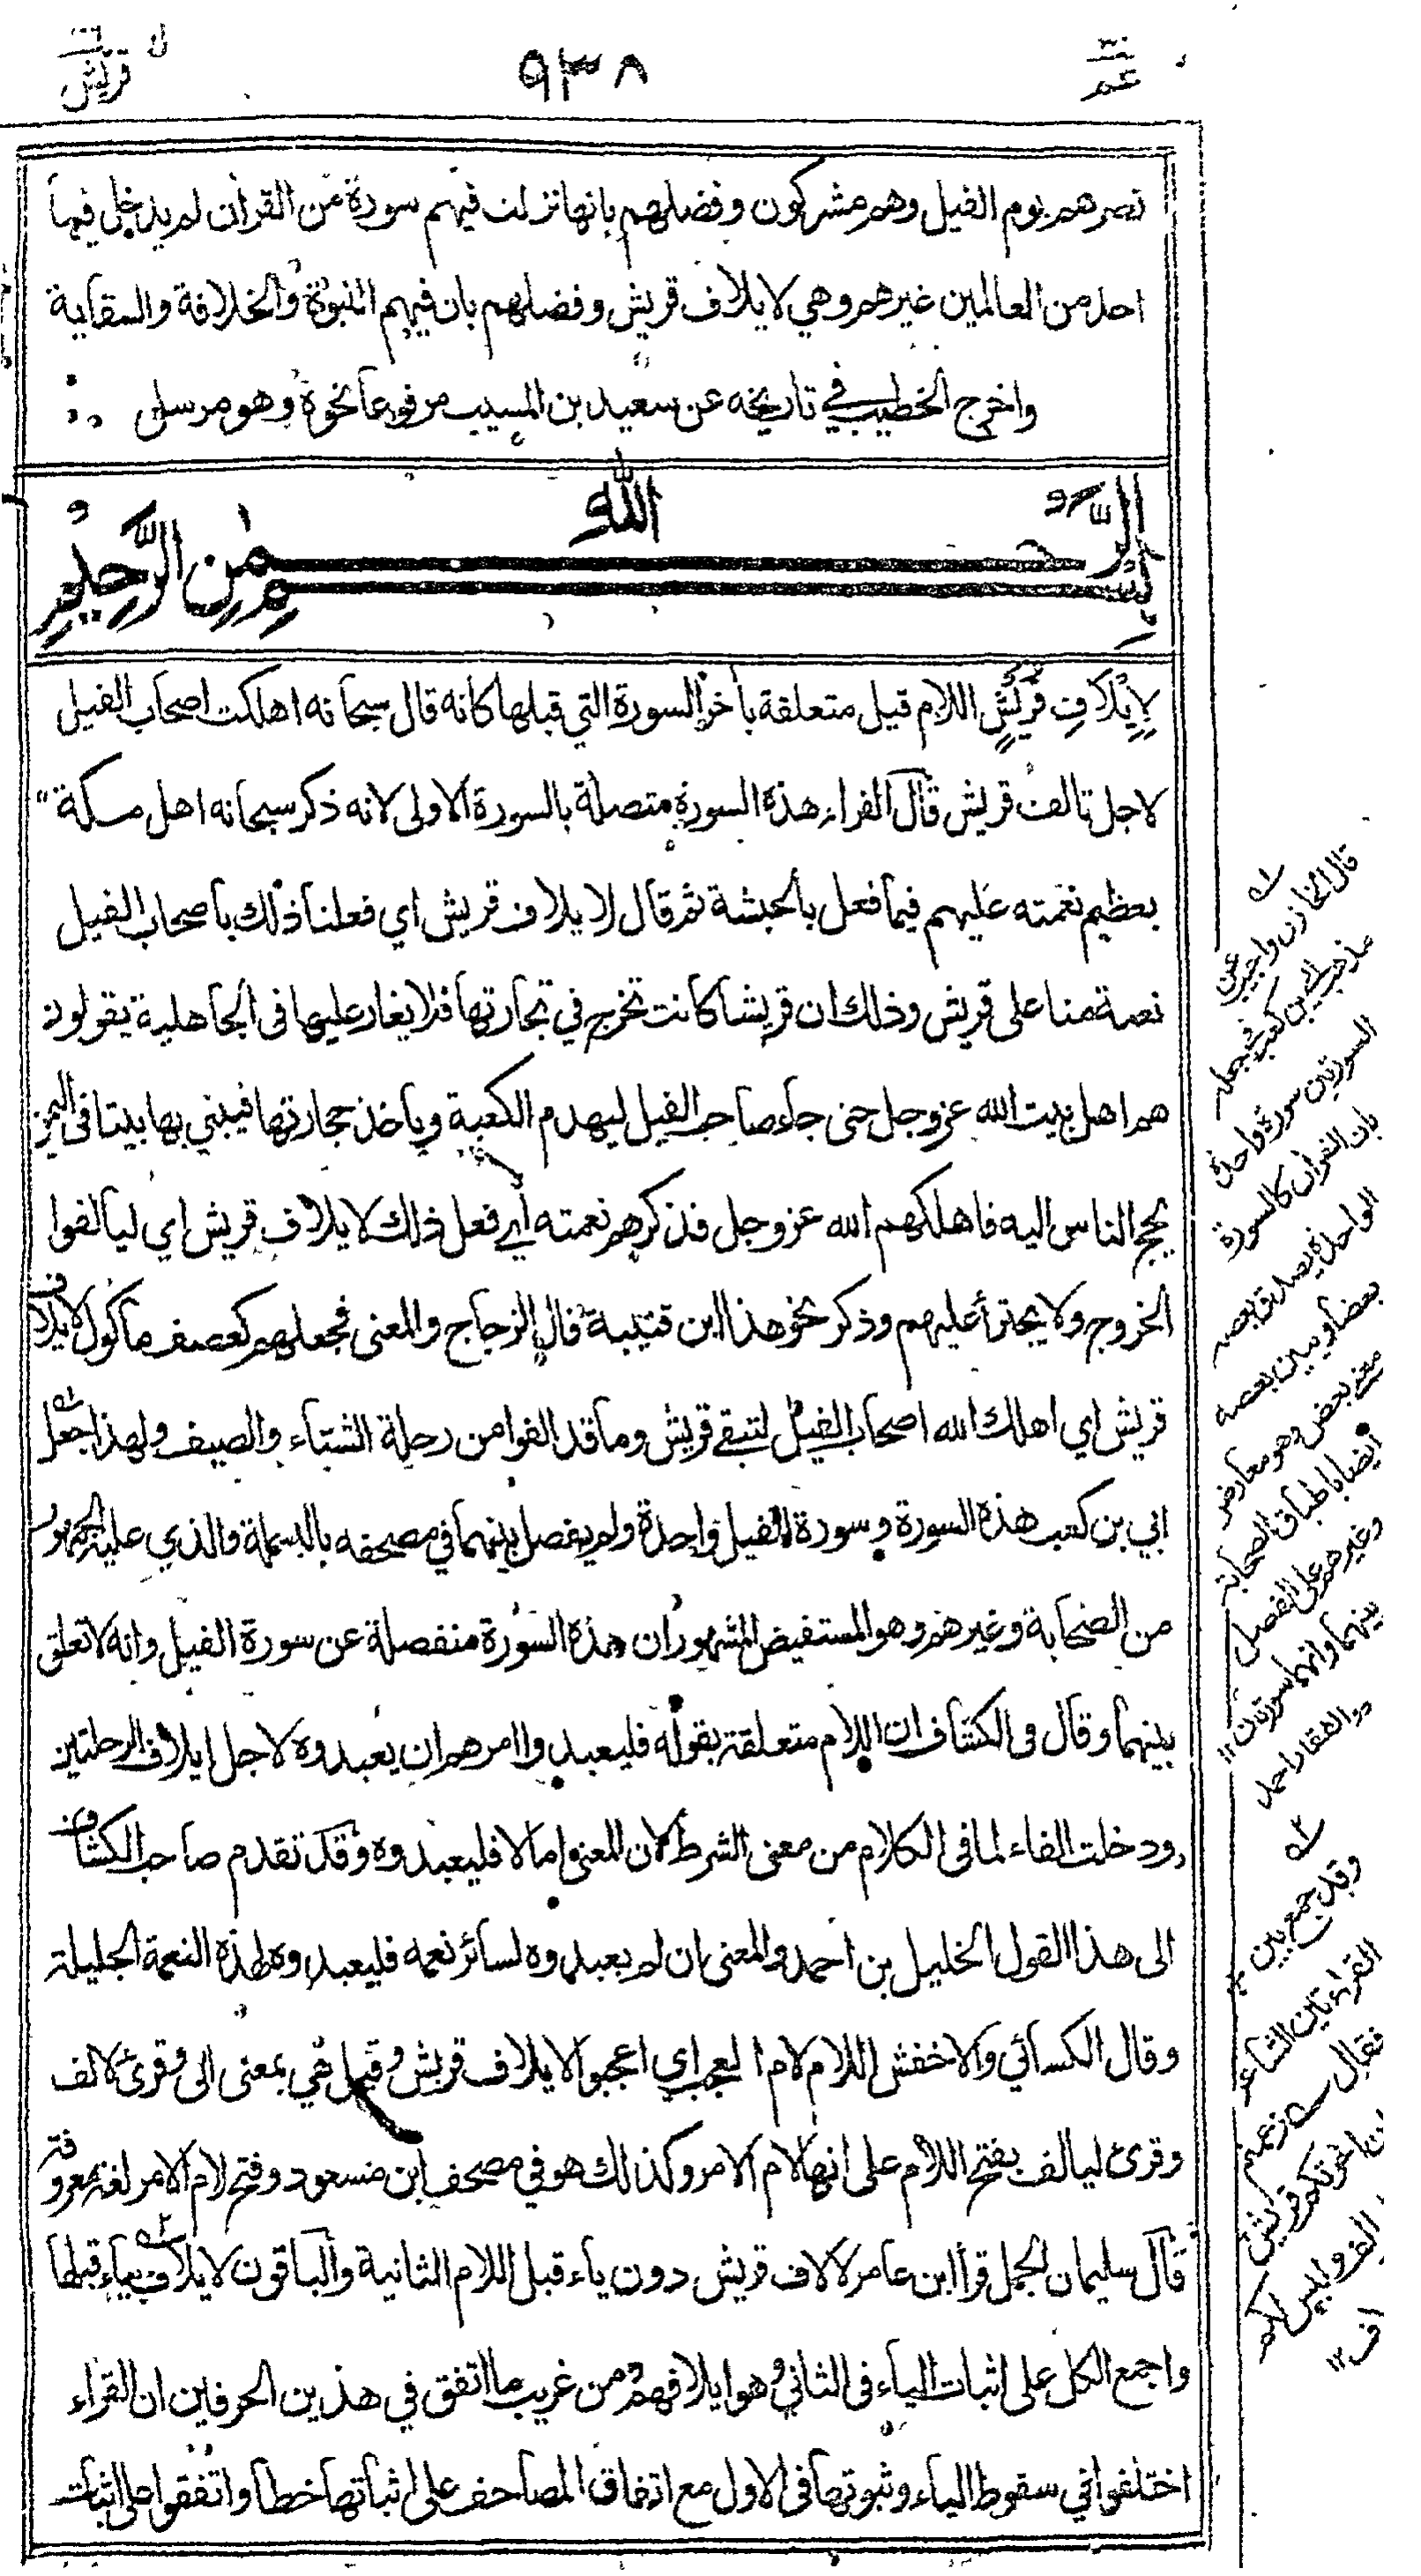 عم
٩٣٨
قريش
نصرهم يوم الفيل وهم مشركون وفضلهم بانها نزلت فيهم سورة من القرآن لم يدخل فيها
احد من العالمين غيرهم وهي لايلاف قريش وفضلهم بان فيهم النبوة والخلافة والسقاية
واخرج الخطيب في تاريخه عن سعيد بن المسيب مرفوعا نحوه وهو مرسل
بسم الله الرحمن الرحيم
لِإِيْلَافِ قُرَيْشٍ اللام قيل متعلقة بآخر السورة التي قبلها كانه قال سبحانه اهلكت اصحاب الفيل
لاجل تالف قريش قال الفراء هذه السورة متصلة بالسورة الاولى لانه ذكر سبحانه اهل مكة
بعظيم نعمته عليهم فيما فعل بالحبشة ثم قال لايلاف قريش اي فعلنا ذلك باصحاب الفيل
نعمة منا على قريش وذلك ان قريشا كانت تخرج في تجارتها فلا يغار عليها فى الجاهلية يقولون
هم اهل بيت الله عزوجل حتى جاء صاحب الفيل ليهدم الكعبة وياخذ حجارتها فيبني بها بيتا فى اليمن
يحج الناس اليه فاهلكهم الله عزوجل فذكرهم نعمته أي فعل ذلك لايلاف قريش اي ليألفوا
الخروج ولا يجترأ عليهم وذكر نحو هذا ابن قتيبة قال الزجاج والمعنى فجعلهم كعصف مأكول لايلاف
قريش اي اهلك الله اصحاب الفيل لتبقى قريش وما قد الفوا من رحلة الشتاء والصيف ولهذا جعل
ابي بن كعب هذه السورة وسورة الفيل واحدة ولم يفصل بينهما في مصحفه بالبسملة والذي عليه الجمهور
من الصحابة وغيرهم وهو المستفيض المشهور ان هذه السورة منفصلة عن سورة الفيل وانه لا تعلق
بينهما وقال فى الكشاف ان اللام متعلقة بقوله فليعبدوا امرهم ان يعبدوه لاجل ايلاف الرحلتين
ودخلت الفاء لما فى الكلام من معنى الشرط لان المعنى اما لا فليعبدوه وقد تقدم صاحب الكشاف
الى هذا القول الخليل بن احمد والمعنى ان لم يعبدوه لسائر نعمه فليعبدوه لهذه النعمة الجليلة
وقال الكسائي والاخفش اللام لام العجب اي اعجبوا لايلاف قريش وقيل هي بمعنى الى وقرئ لالف
وقرئ ليالف بفتح اللام على انها لام الامر وكذلك هو في مصحف ابن مسعود وفتح لام الامر لغة معروفة
قال سليمان الجمل قرأ ابن عامر لالاف قريش دون ياء قبل اللام الثانية والباقون لايلاف بياء قبلها
واجمع الكل على اثبات الياء فى الثاني وهو ايلافهم ومن غريب ما اتفق في هذين الحرفين ان القراء
اختلفوا في سقوط الياء وثبوتها فى الاول مع اتفاق المصاحف على اثباتها خطا واتفقوا على اثبات
قال الخازن واجيب عن
مذهب ابي بن كعب في جعل
السورتين سورة واحدة
بان القران كالسورة
الواحدة يصدق بعضه
بعضا ويبين بعضه
معنى بعض وهو معارض
ايضا باطباق الصحابة
وغيرهم على الفصل
بينهما وانهما سورتان ١٢
ذوالفقار احمد
وقد جمع بين
القراءتين الشاعر
فقال زعمتم
ان اخوتكم قريش
الف وليس لكم
الاف ١٢